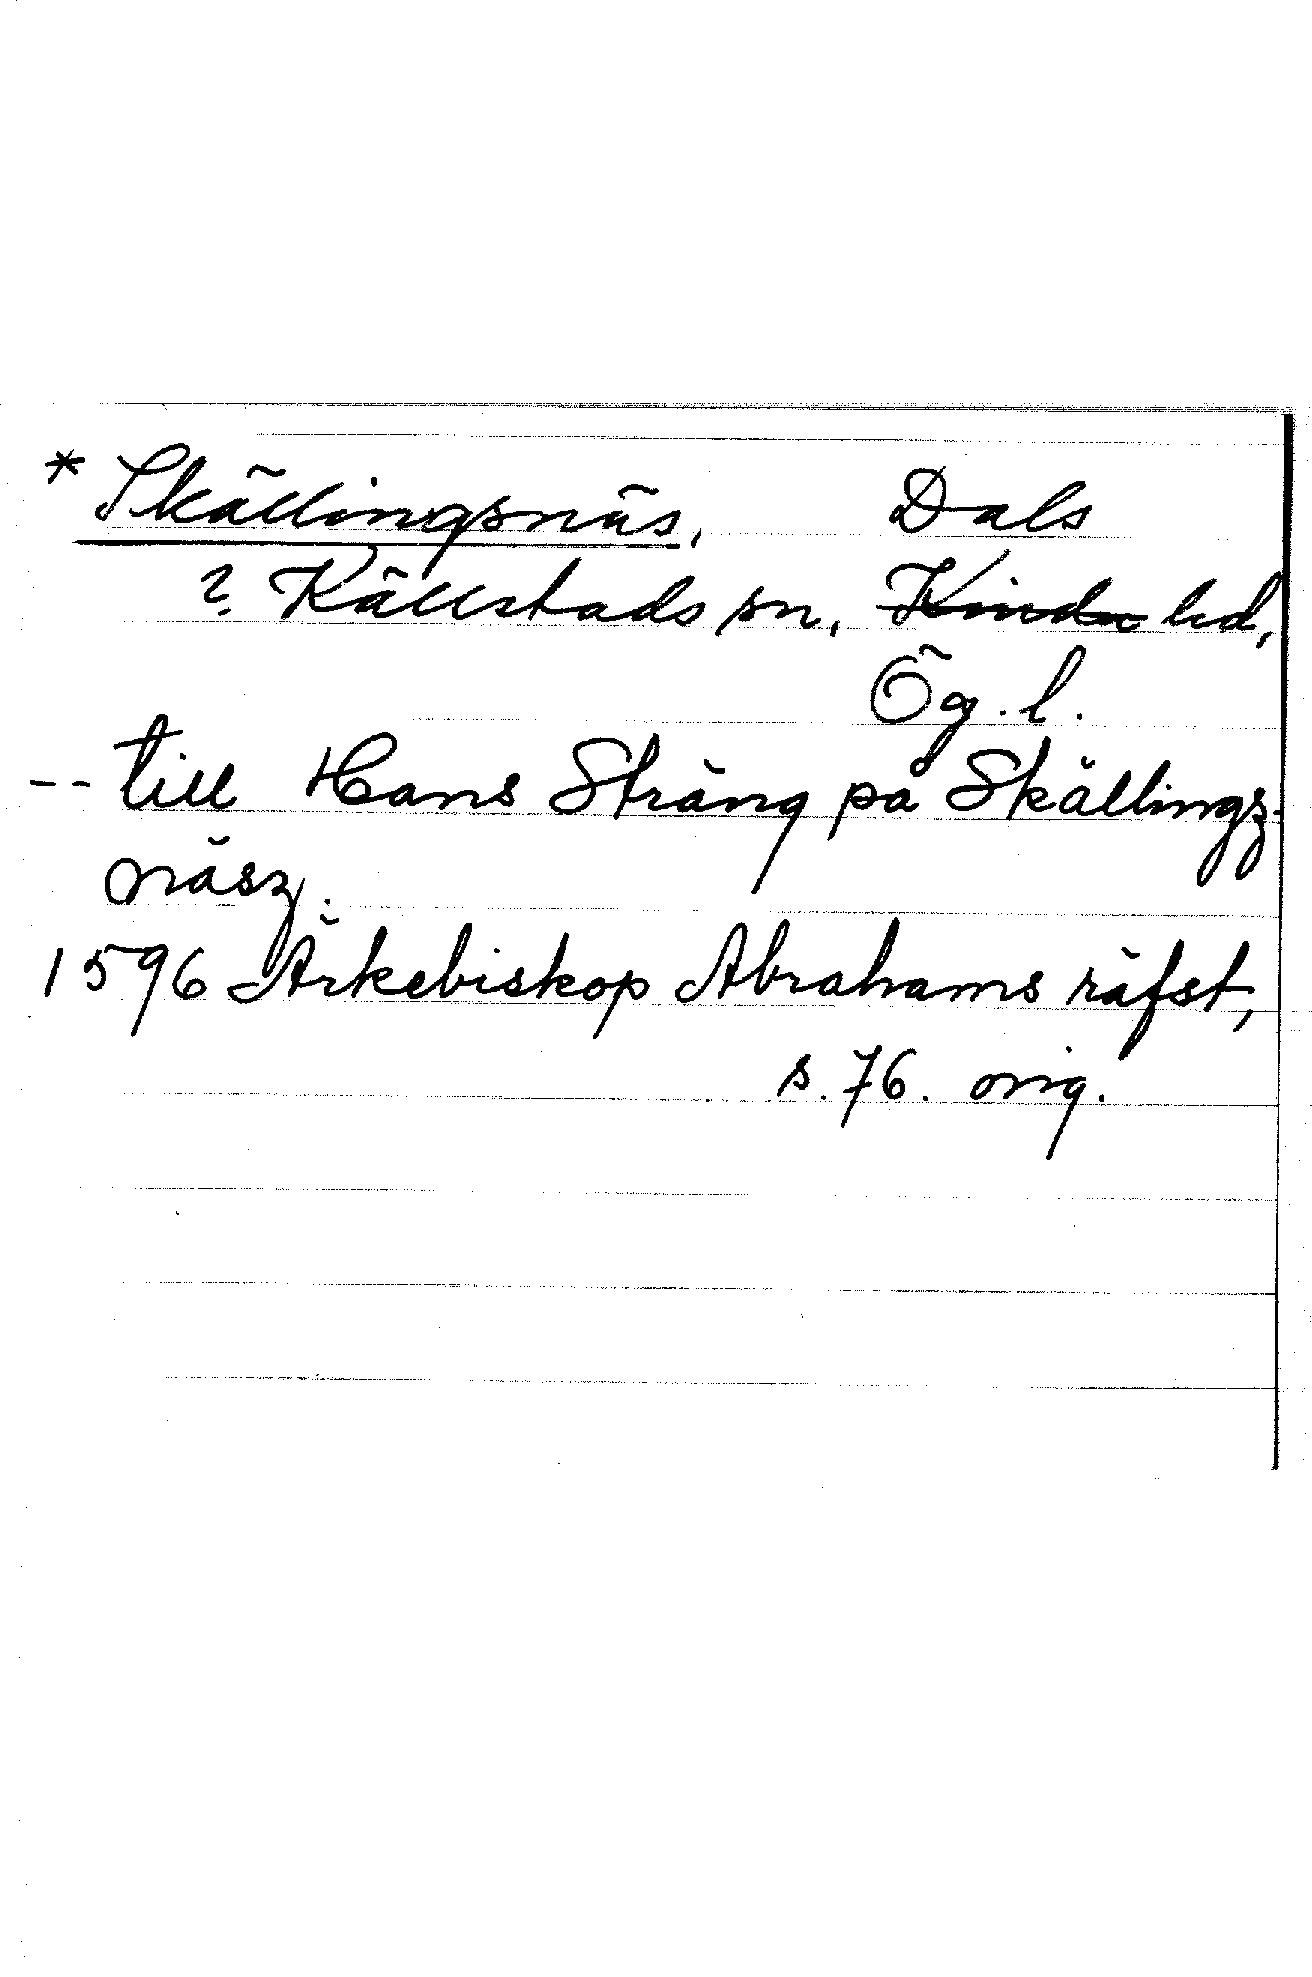 * Skällingsnäs, Dals
? Källstads sn, Kinda hd,
Ög. l.
-- till Hans Sträng på Skällings-
näsz.
1596 Ärkebiskop Abrahams räfst,
s. 76. orig.